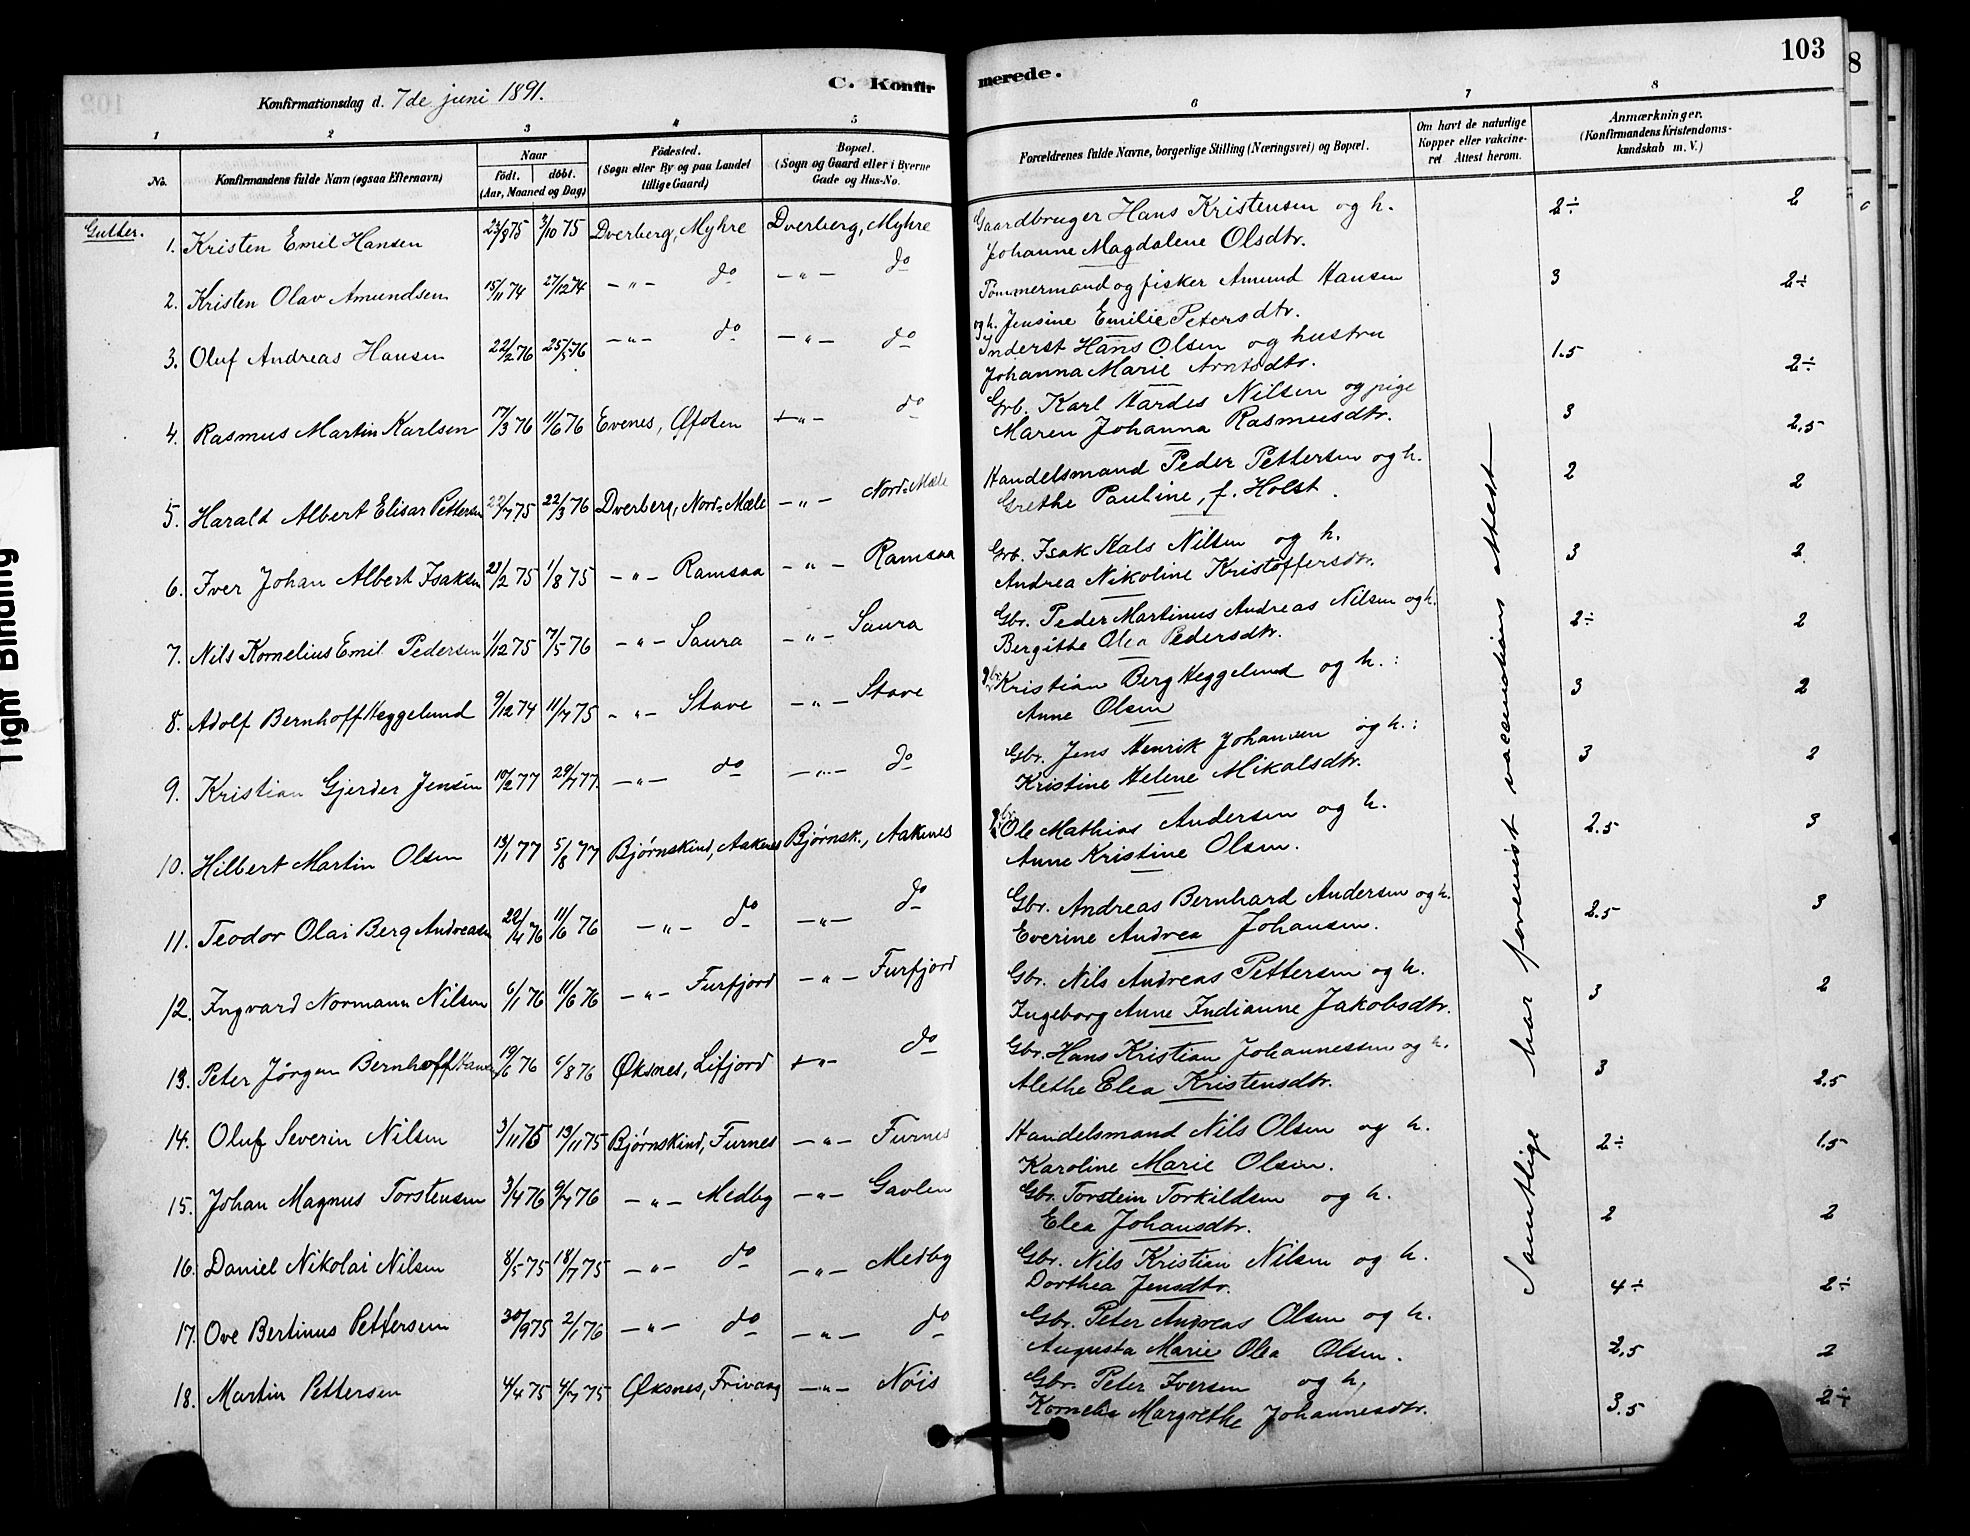 103
C. Konfirmerede.
Konfirmationsdag d. 7de juni 1891.
1 2 3 4 5 6 7 8
No. Konfirmandens fulde Navn (ogsaa Efternavn) Naar födt. döbt. (Aar, Maaned og Dag) Födested. (Sogn eller By og paa Landet tillige Gaard) Bopæl. (Sogn og Gaard eller i Byerne Gade og Hus-No. Forældrenes fulde Navne, borgerlige Stilling (Næringsvei) og Bopæl. Om havt de naturlige Kopper eller vakcineret Attest herom. Anmærkninger. (Konfirmandens Kristendomskundskab m. V.)
Gutter.
1. Kristen Emil Hansen 23/8 75 3/10 75 Dverberg, Myhre Dverberg, Myhre Gaardbruger Hans Kristensen og h. 2÷ 2
Johanne Magdalene Olsdtr.
2. Kristen Olav Amundsen 15/11 74 27/12 74 —"— do —"— do Tømmermand og fisker Amund Hansen 3 2÷
og h. Jensine Emilie Petersdtr.
3. Oluf Andreas Hansen 22/2 76 25/5 76 —"— do —"— do Inderst Hans Olsen og hustru 1.5 2÷
Johanna Marie Arntsdtr.
4. Rasmus Martin Karlsen 17/3 76 11/6 76 Evenes, Ofoten +"— do Grb. Karl Hardes Nilsen og pige 3 2,5
Maren Johanna Rasmusdtr.
5. Harald Albert Elisar Pettersen 22/7 75 22/3 76 Dverberg, Nord-Mæle —"— Nord-Mæle Handelsmand Peder Pettersen og h. 2 2
Grethe Pauline, f. Holst.
6. Iver Johan Albert Isaksen 23/2 75 1/8 75 —"— Ramsaa —"— Ramsaa Grb. Isak Hals Nilsen og h. 3 2
Andrea Nikoline Kristoffersdtr.
7. Nils Kornelius Emil Pedersen 1/12 75 7/5 76 —"— Saura —"— Saura Gbr. Peder Martinus Andreas Nilsen og h. 2÷ 2
Bergitte Olea Pedersdtr.
8. Adolf Bernhoff Heggelund 9/12 74 11/7 75 —"— Stave —"— Stave Gbr. Kristian Berg Heggelund og h.: 3 2
Anne Olsen
9. Kristian Gjerder Jensen 10/2 77 29/7 77. —"— do —"— do Gbr. Jens Henrik Johansen og h.: 3 2
Kristine Helene Mikalsdtr.
10. Hilbert Martin Olsen 13/1 77 5/8 77 Bjørnskind, Aakenes Bjørnsk., Aakenes Gbr. Ole Mathias Andersen og h. 2.5 3
Anne Kristine Olsen.
11. Teodor Olai Berg Andreasen 22/4 76 11/6 76 —"— do —"— do Gbr. Andreas Bernhard Andersen og h. 2.5 3
Everine Andrea Johansen.
12. Ingvard Normann Nilsen 6/1 76 11/6 76 —"— Furfjord —"— Furfjord Gbr. Nils Andreas Pettersen og h. 3 2
Ingeborg Anne Indianne Jakobsdtr.
13. Peter Jörgen Bernhoff Hansen 19/6 76 6/8 76 Øksnes, Lifjord +"— do Gbr. Hans Kristian Johannessen og h. 3 2.5
Alethe Elea Kristensdtr.
14. Oluf Severin Nilsen 3/11 75 13/11 75 Bjørnskind, Furnes —"— Furnes Handelsmand Nils Olsen og h. 2÷ 1.5
Karoline Marie Olsen.
15. Johan Magnus Torstensen 3/4 76 9/7 76 —"— Medby —"— Gavlen Gbr. Torstein Torkildsen og h. 2 2
Elea Johansdtr.
16. Daniel Nikolai Nilsen 8/5 75 18/7 75 —"— do —"— Medby Gbr. Nils Kristian Nilsen og h. 4÷ 2÷
Dorthea Jensdtr.
17. Ove Bertinus Pettersen 30/9 75 2/1 76 —"— do —"— do Gbr. Peter Andreas Olsen og h. 2,5 2
Augusta Marie Olea Olsen.
18. Martin Pettersen 4/4 75 4/7 75 Øksnes, Frivaag —"— Nöis Gbr. Peter Iversen og h. 3.5 2÷
Kornelia Margrethe Johannesdtr.
Samtlige har forevist vaccinations Attest
Tight Binding